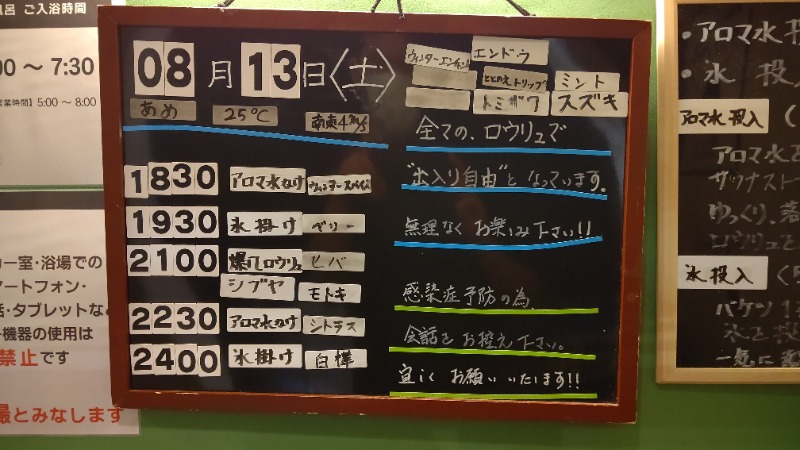 呂 ご入浴時間
00 ～ 7:30
営業時間】5:00 ～ 8:00
08月13日〈土〉
あめ 25℃ 南東4m/s
エンドウ
ととのえトリップ ミント
トミザワ スズキ
1830 アロマ水かけ
1930 氷掛け ベリー
2100 爆風ロウリュ ヒバ
シブヤ モトキ
2230 アロマ水かけ シトラス
2400 氷掛け 白樺
全ての、ロウリュで
"出入り自由"となっています。
無理なくお楽しみ下さい!!
感染症予防の為、
会話をお控え下さい。
宜しくお願いいたします!!
・アロマ水投
・氷投入
アロマ水投入
アロマ水を
サウナスト
ゆっくり、
ロウリュと
氷投入
バケツ1
氷を投
一気に
ー室・浴場での
ートフォン・
・タブレットな
機器の使用は
禁止です
最とみなします